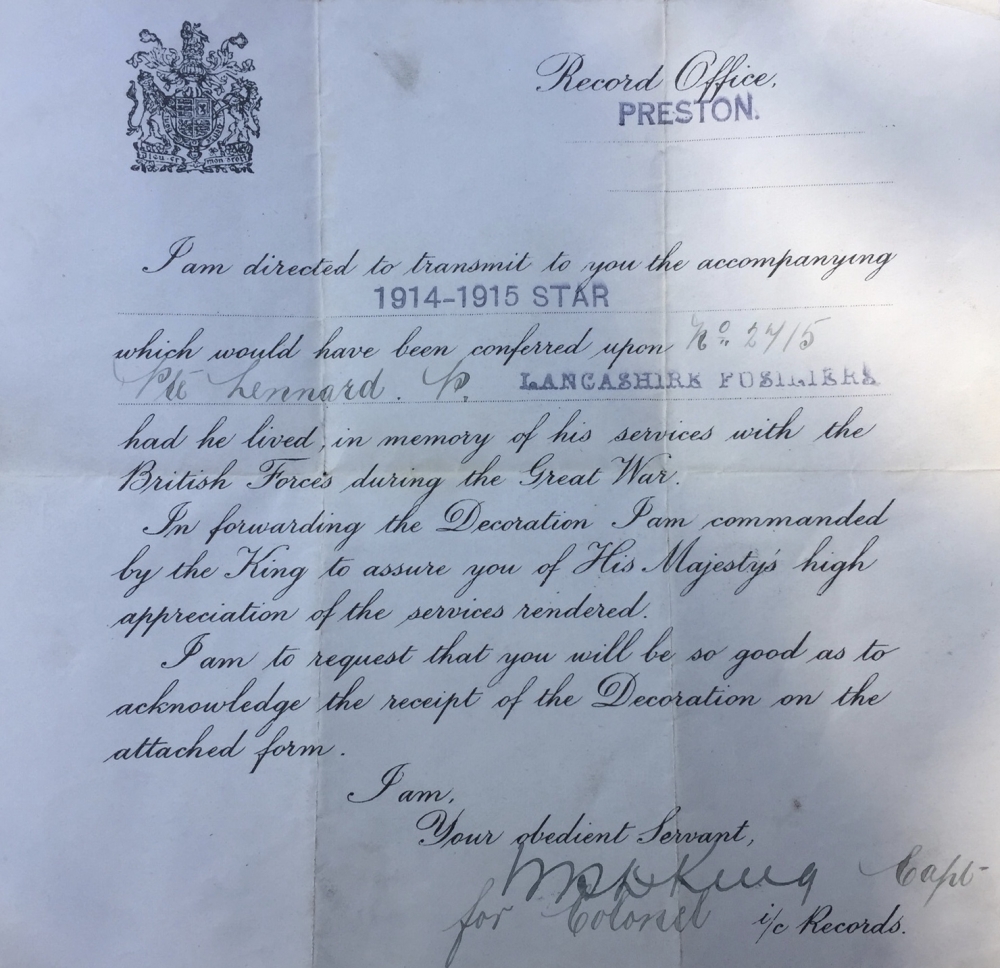 Dieu et mon droit
Record Office,
PRESTON.
I am directed to transmit to you the accompanying
1914-1915 STAR
which would have been conferred upon No. 2715
Pte Lennard. P. LANCASHIRE FUSILIERS
had he lived, in memory of his services with the
British Forces during the Great War.
In forwarding the Decoration I am commanded
by the King to assure you of His Majesty's high
appreciation of the services rendered.
I am to request that you will be so good as to
acknowledge the receipt of the Decoration on the
attached form.
I am,
Your obedient Servant,
King Capt
for Colonel i/c Records.